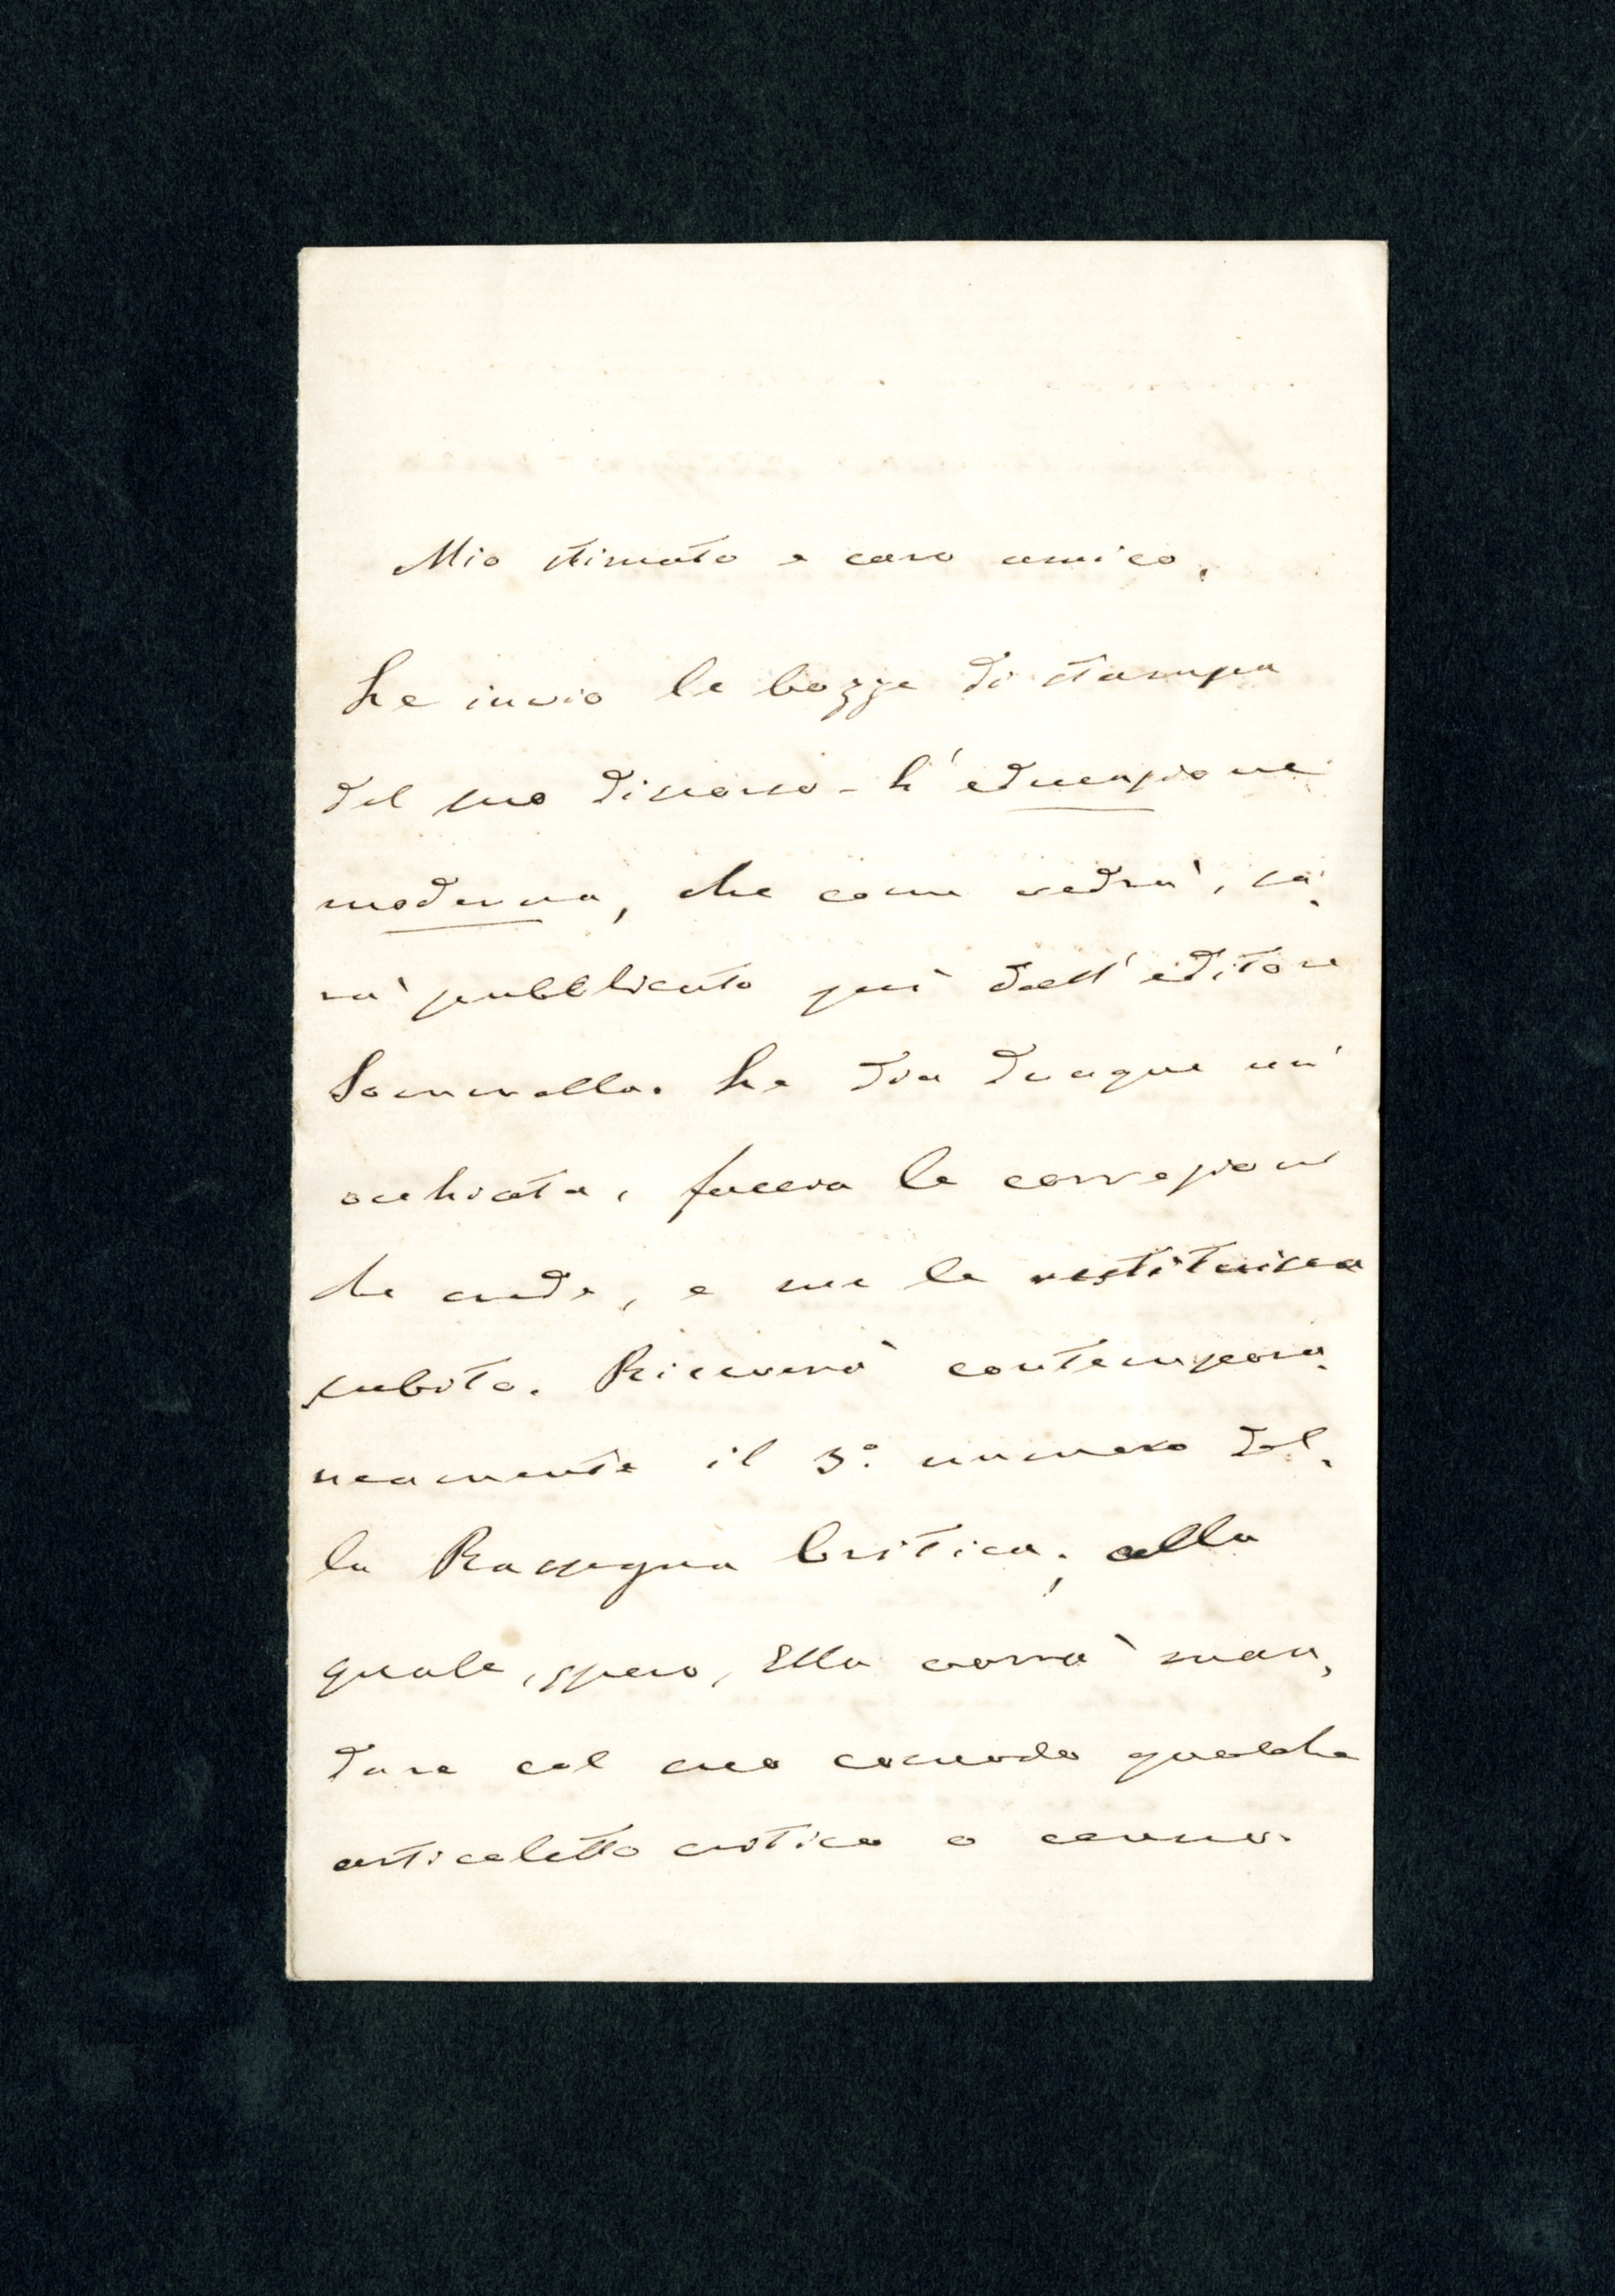 Mio stimato e caro amico,
Le invio le bozze di stampa
del suo discorso - L'educazione
moderna, che come vedrà, sa-
rà pubblicato qui dall'editore
Sommella. Le dia dunque un'
occhiata, faccia le correzioni
che crede, e me le restituisca
subito. Riceverà contempora-
neamente il 3º numero del-
la Rassegna Critica; alla
quale, spero, Ella vorrà man-
dare col suo comodo qualche
articoletto critico o cenno.